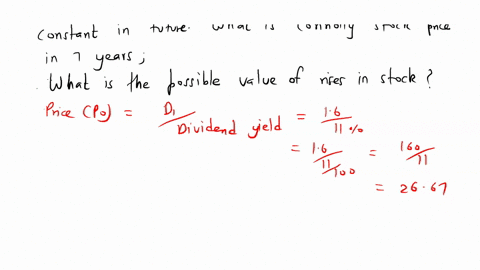 constant in future. What is Connolly stock price
in 7 years;
What is the possible value of rises in stock?
Price (P0) = D1/Dividend yield = 1.6/11%
= 1.6/11/100 = 160/11
= 26.67